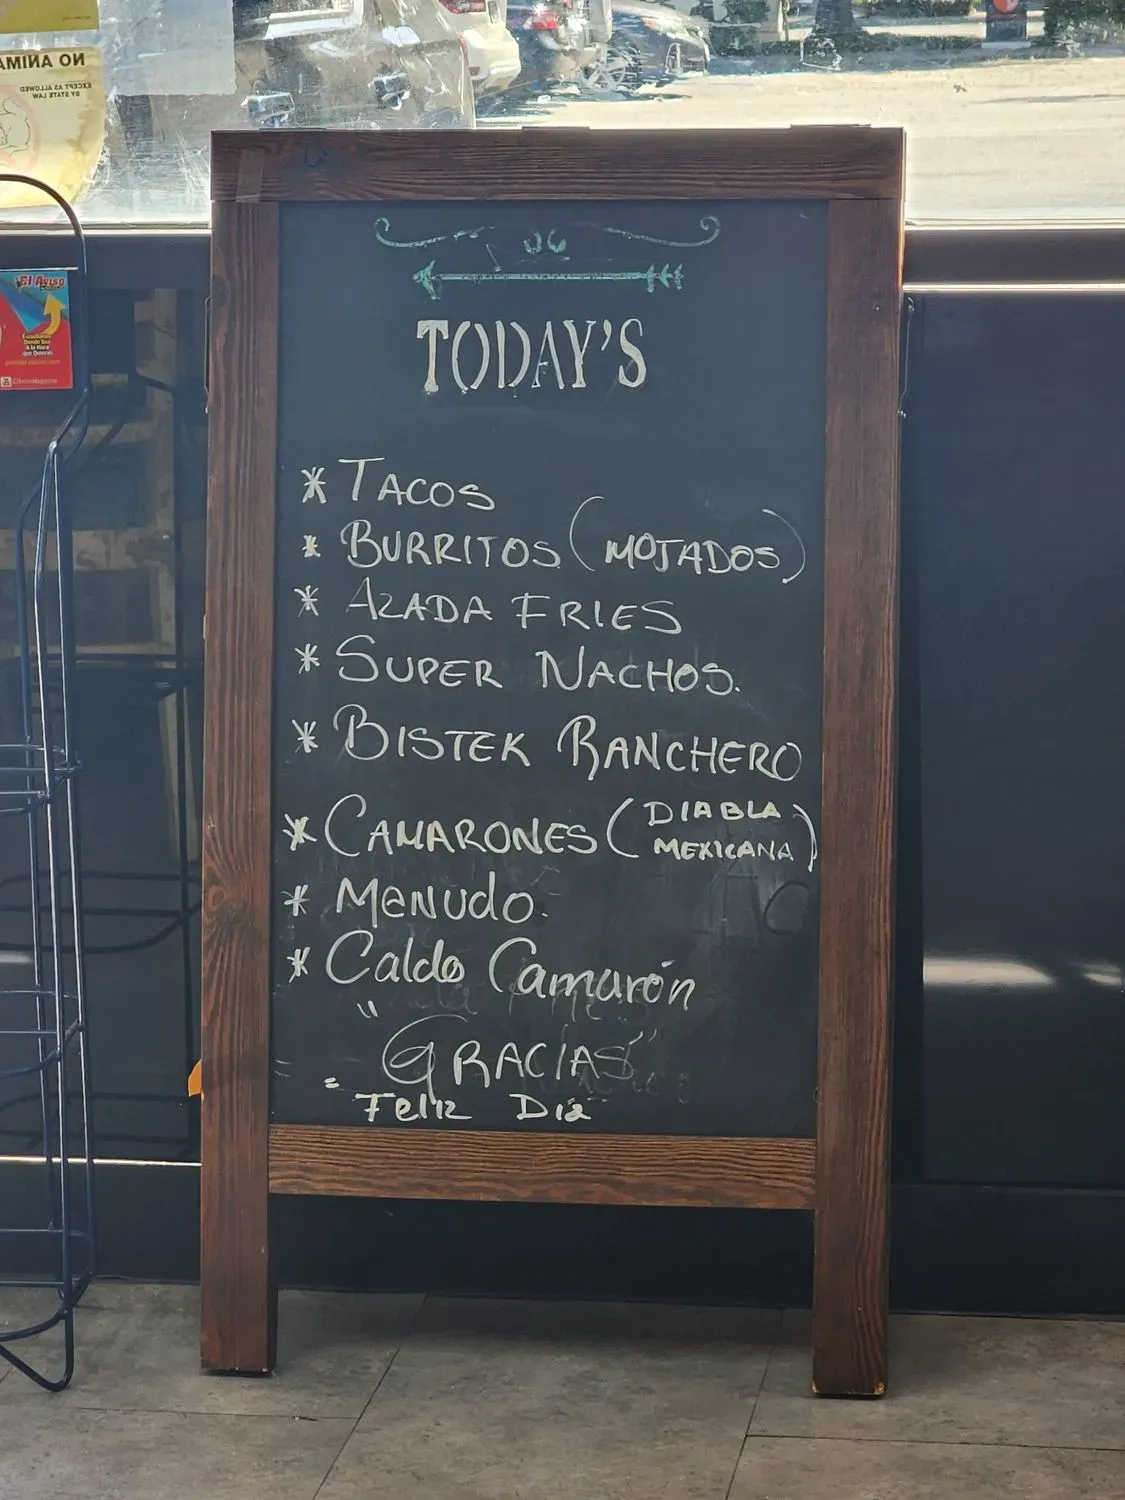 NO ANIMA
EXCEPT AS ALLOWED
BY STATE LAW
El Aviso
Escúchanos
Donde Sea
A la Hora
que Quieras
TODAY'S
* TACOS
* BURRITOS (MOJADOS)
* AZADA FRIES
* SUPER NACHOS.
* BISTEK RANCHERO
* CAMARONES (DIABLA
MEXICANA)
* MENUDO.
* Caldo Camarón
" GRACIAS"
= Feliz Dia